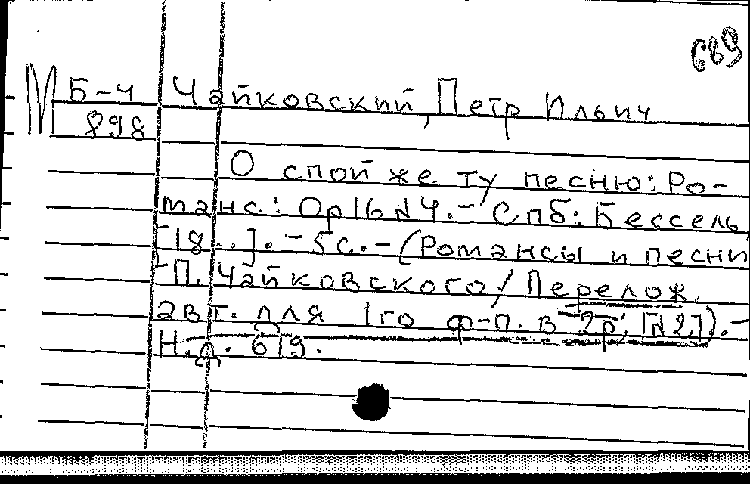 689
М Б-Ч Чайковский, Петр Ильич
898
О спой же ту песню: Ро-
манс.: Op16 №4. - Спб: Бессель,
[18..]. - 5с. - (Романсы и песни
П. Чайковского / Перелож.
авт. для 1го ф-п. в 2р; [№2]). -
Н.д. 619.